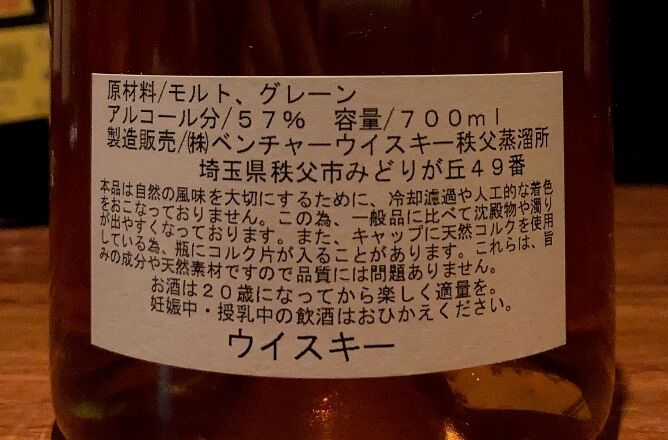 原材料/モルト、グレーン
アルコール分/57% 容量/700ml
製造販売/㈱ベンチャーウイスキー秩父蒸溜所
埼玉県秩父市みどりが丘49番
本品は自然の風味を大切にするために、冷却濾過や人工的な着色
をおこなっておりません。この為、一般品に比べて沈殿物や濁り
が出やすくなっております。また、キャップに天然コルクを使用
している為、瓶にコルク片が入ることがあります。これらは、旨
みの成分や天然素材ですので品質には問題ありません。
お酒は20歳になってから楽しく適量を。
妊娠中・授乳中の飲酒はおひかえください。
ウイスキー